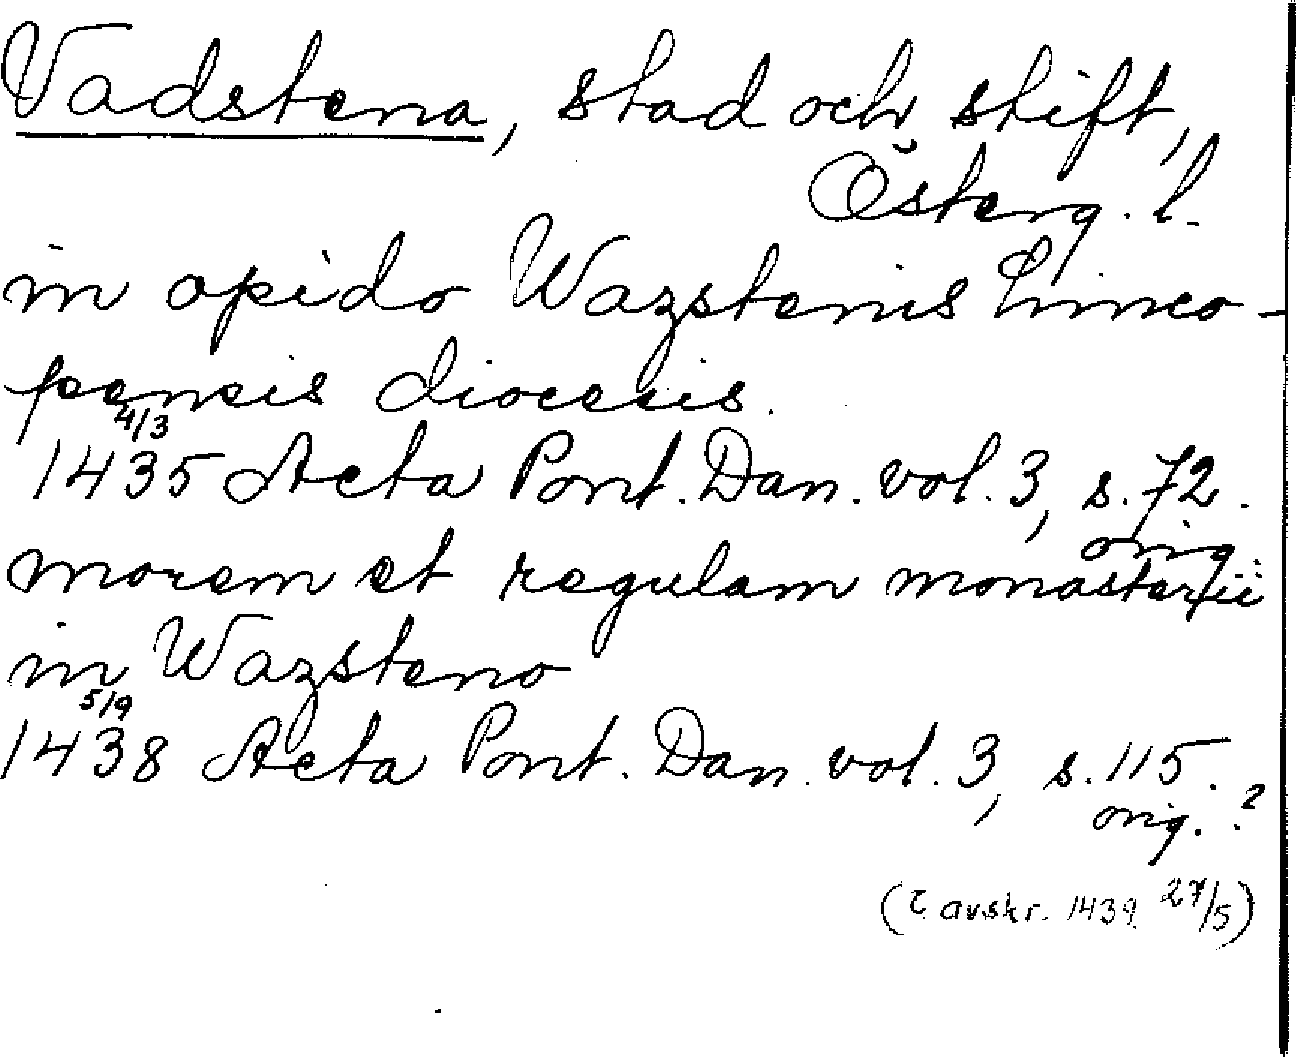 Vadstena, stad och stift,
Österg. l.
in opido Wazstenis Linco-
pensis diocesis.
4/3
1435 Acta Pont. Dan. vol. 3, s. 72.
orig.
morem et regulam monasterii
in Wazsteno
5/9
1438 Acta Pont. Dan. vol. 3, s. 115.
orig. ?
(avskr. 1439 27/5)